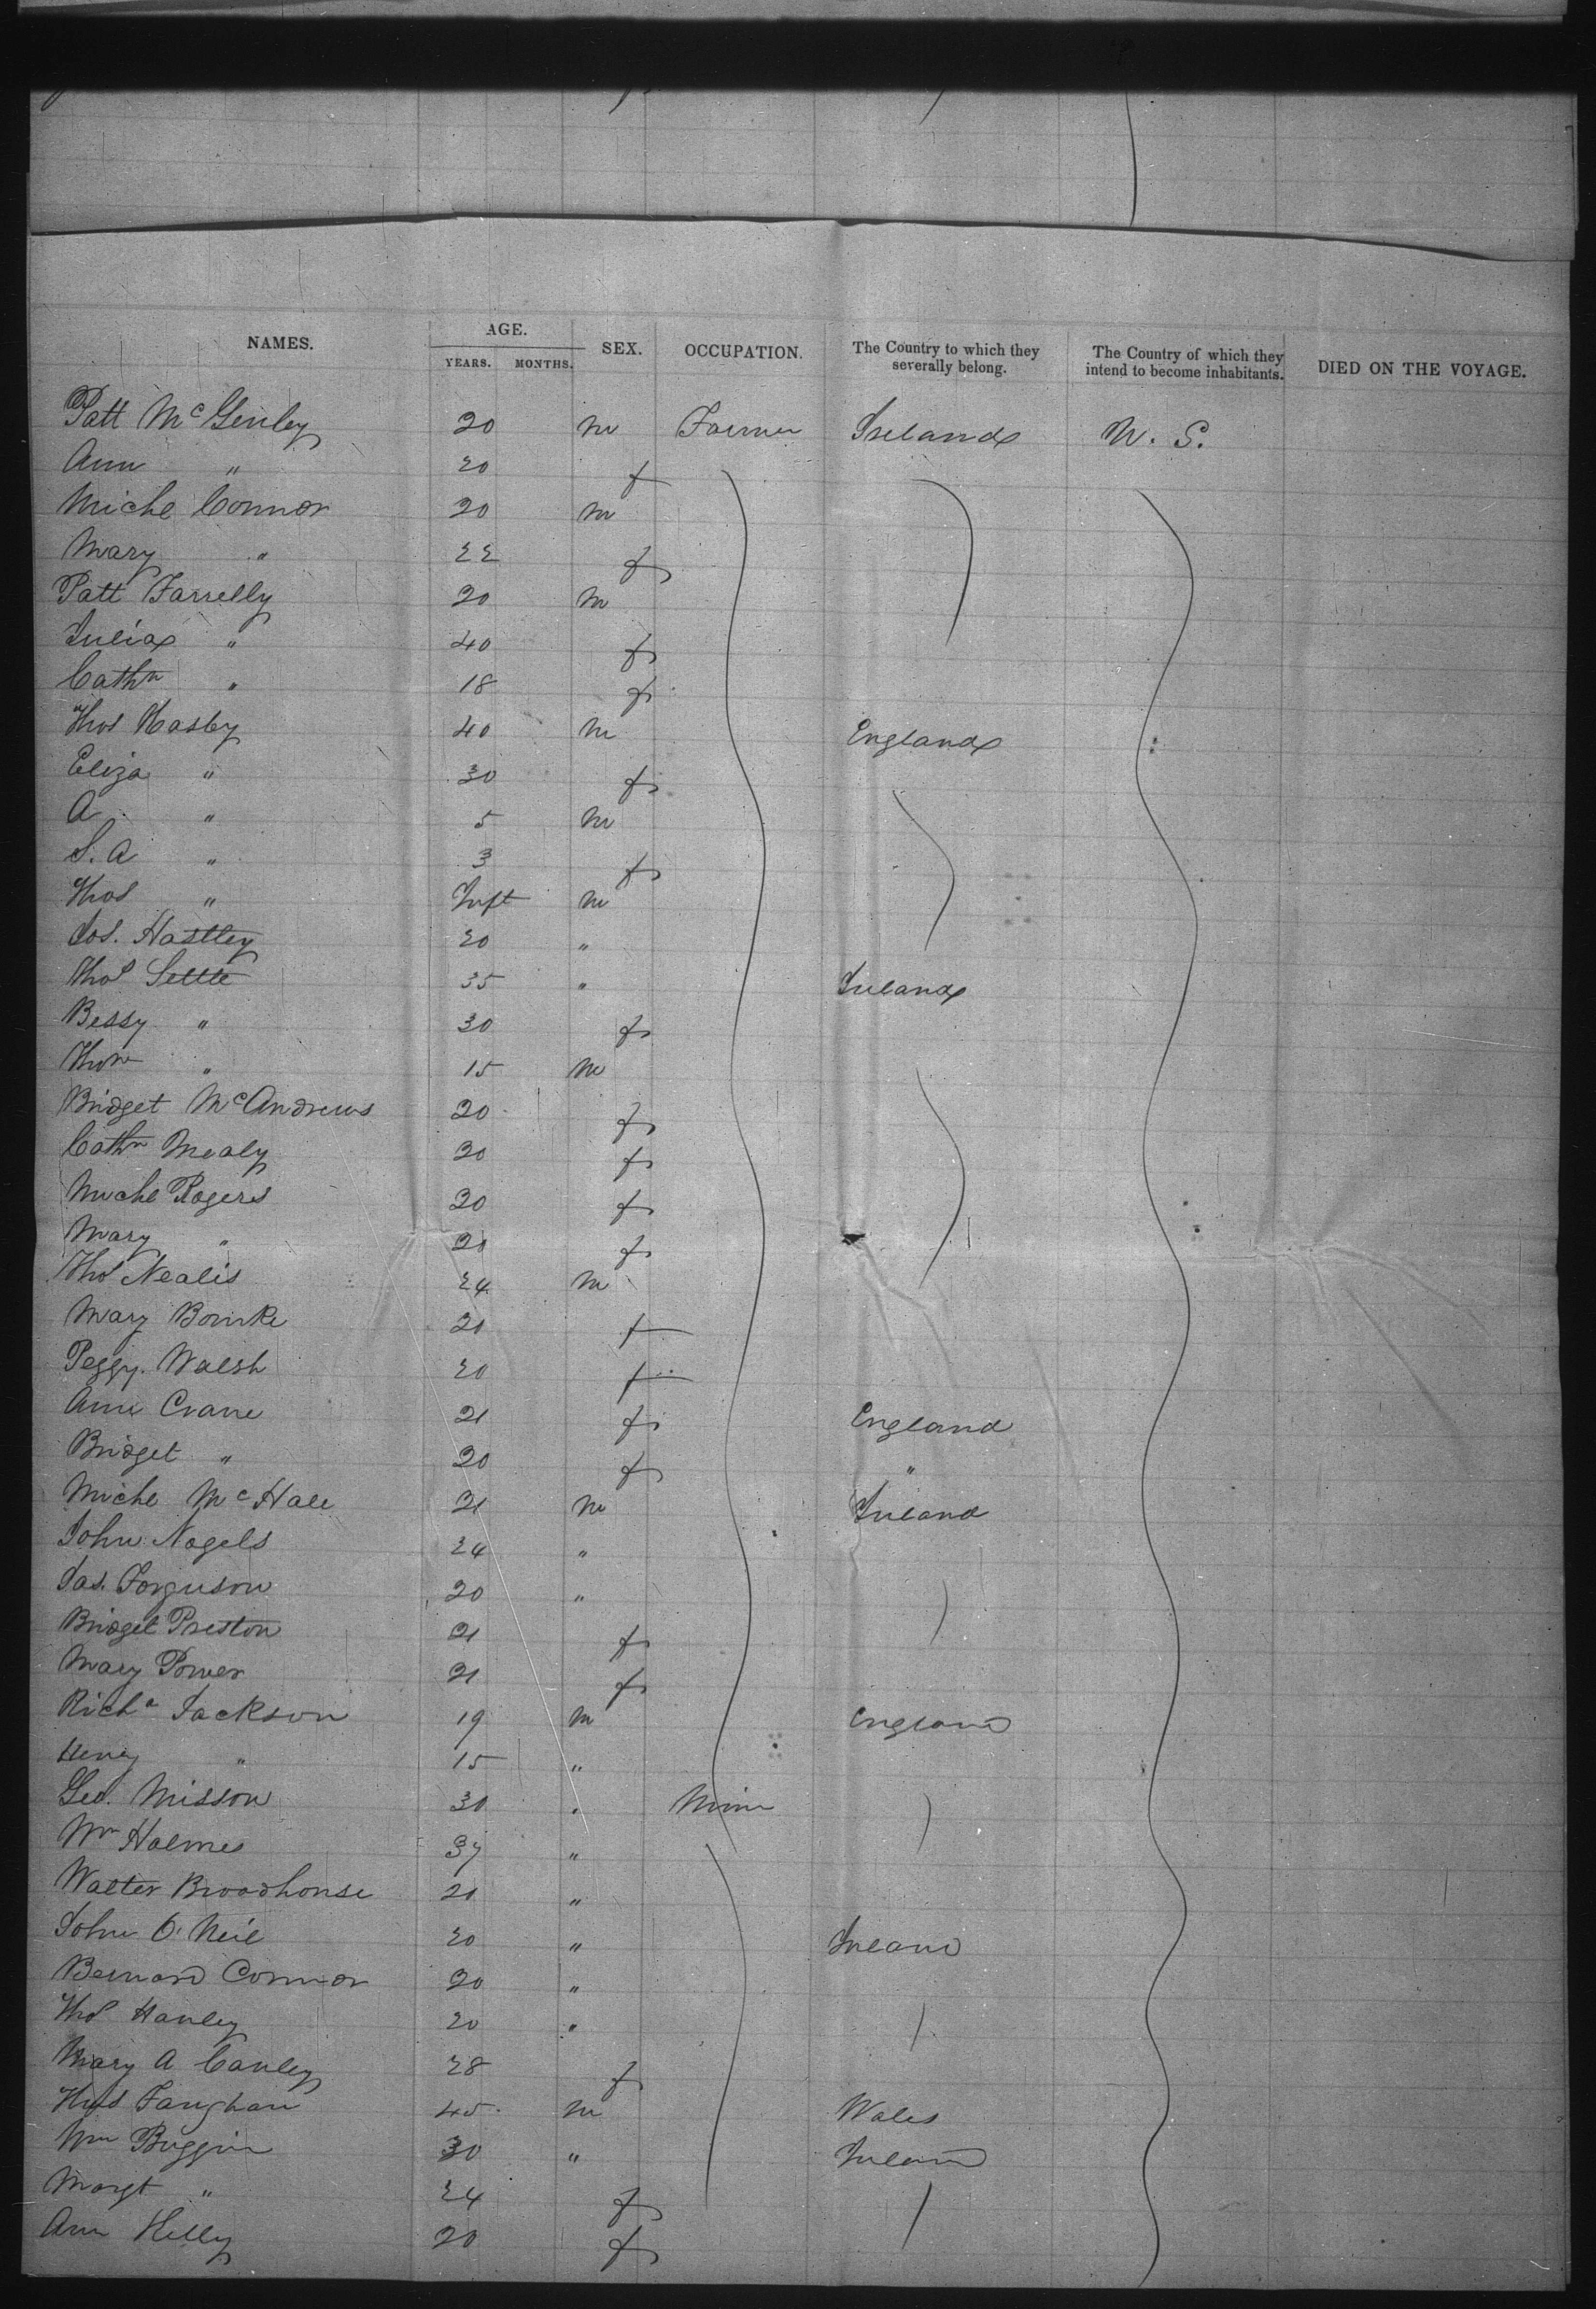 NAMES. AGE. YEARS. MONTHS. SEX. OCCUPATION. The Country to which they severally belong. The Country of which they intend to become inhabitants. DIED ON THE VOYAGE.
Patt McGinley 20 m Farmer Ireland U. S.
Ann " 20 f
Michl Connor 20 m
Mary " 22 f
Patt Farrelly 20 m
Julia " 40 f
Cathn " 18 f
Thos Hasby 40 m England
Eliza " 30 f
A " 5 m
S. A " 3 f
Thos " Inft m
Jos. Hastley 20 "
Thos Settle 35 " Ireland
Bessy " 30 f
Thos " 15 m
Bridget McAndrews 20 f
Cathn Mealy 20 f
Michl Rogers 20 f
Mary " 20 f
Thos Nealis 24 m
Mary Bourke 21 f
Peggy Walsh 20 f
Ann Crane 21 f England
Bridget " 20 f "
Michl McHale 21 m Ireland
John Nagels 24 "
Jas. Forguson 20 "
Bridget Preston 21 f
Mary Power 21 f
Richd Jackson 19 m England
Henry " 15 "
Geo. Misson 30 " Miner
Wm Holmes 37 "
Walter Broadhouse 21 "
John O'Neil 20 " Ireland
Bernard Connor 20 "
Thos Hanley 20 "
Mary A Canley 28 f
Thos Faughan 45 m Wales
Wm Buggin 30 " Ireland
Margt " 24 f
Ann Kelly 20 f